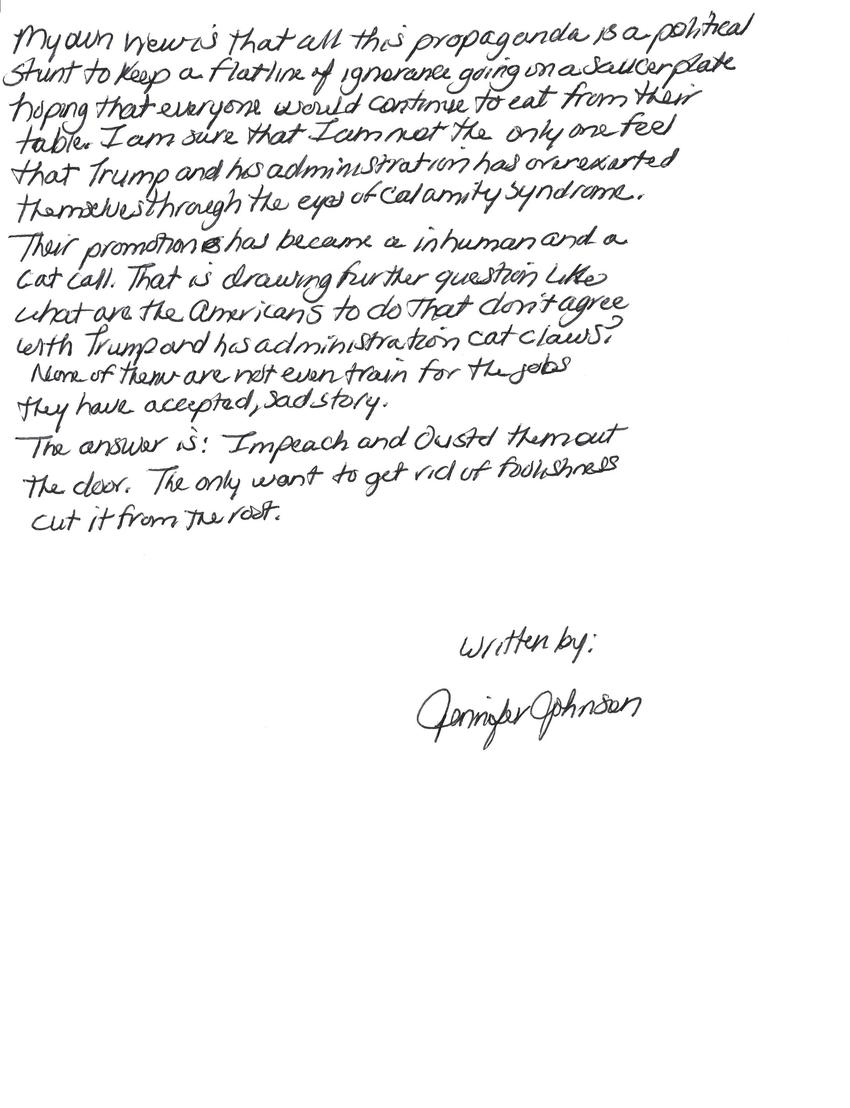 My own view is that all this propaganda is a political
stunt to keep a flatline of ignorance going on a saucer plate
hoping that everyone would continue to eat from their
table. I am sure that I am not the only one feel
that Trump and his administration has overexarted
themselves through the eyes of calamity syndrome.
Their promotion has became a inhuman and a
cat call. That is drawing further question like
what are the Americans to do that don't agree
with Trump and his administration cat claws?
None of them are not even train for the jobs
they have accepted, sad story.
The answer is: Impeach and Oustd them out
the door. The only want to get rid of foolishness
cut it from the root.
Written by:
Jennifer Johnson